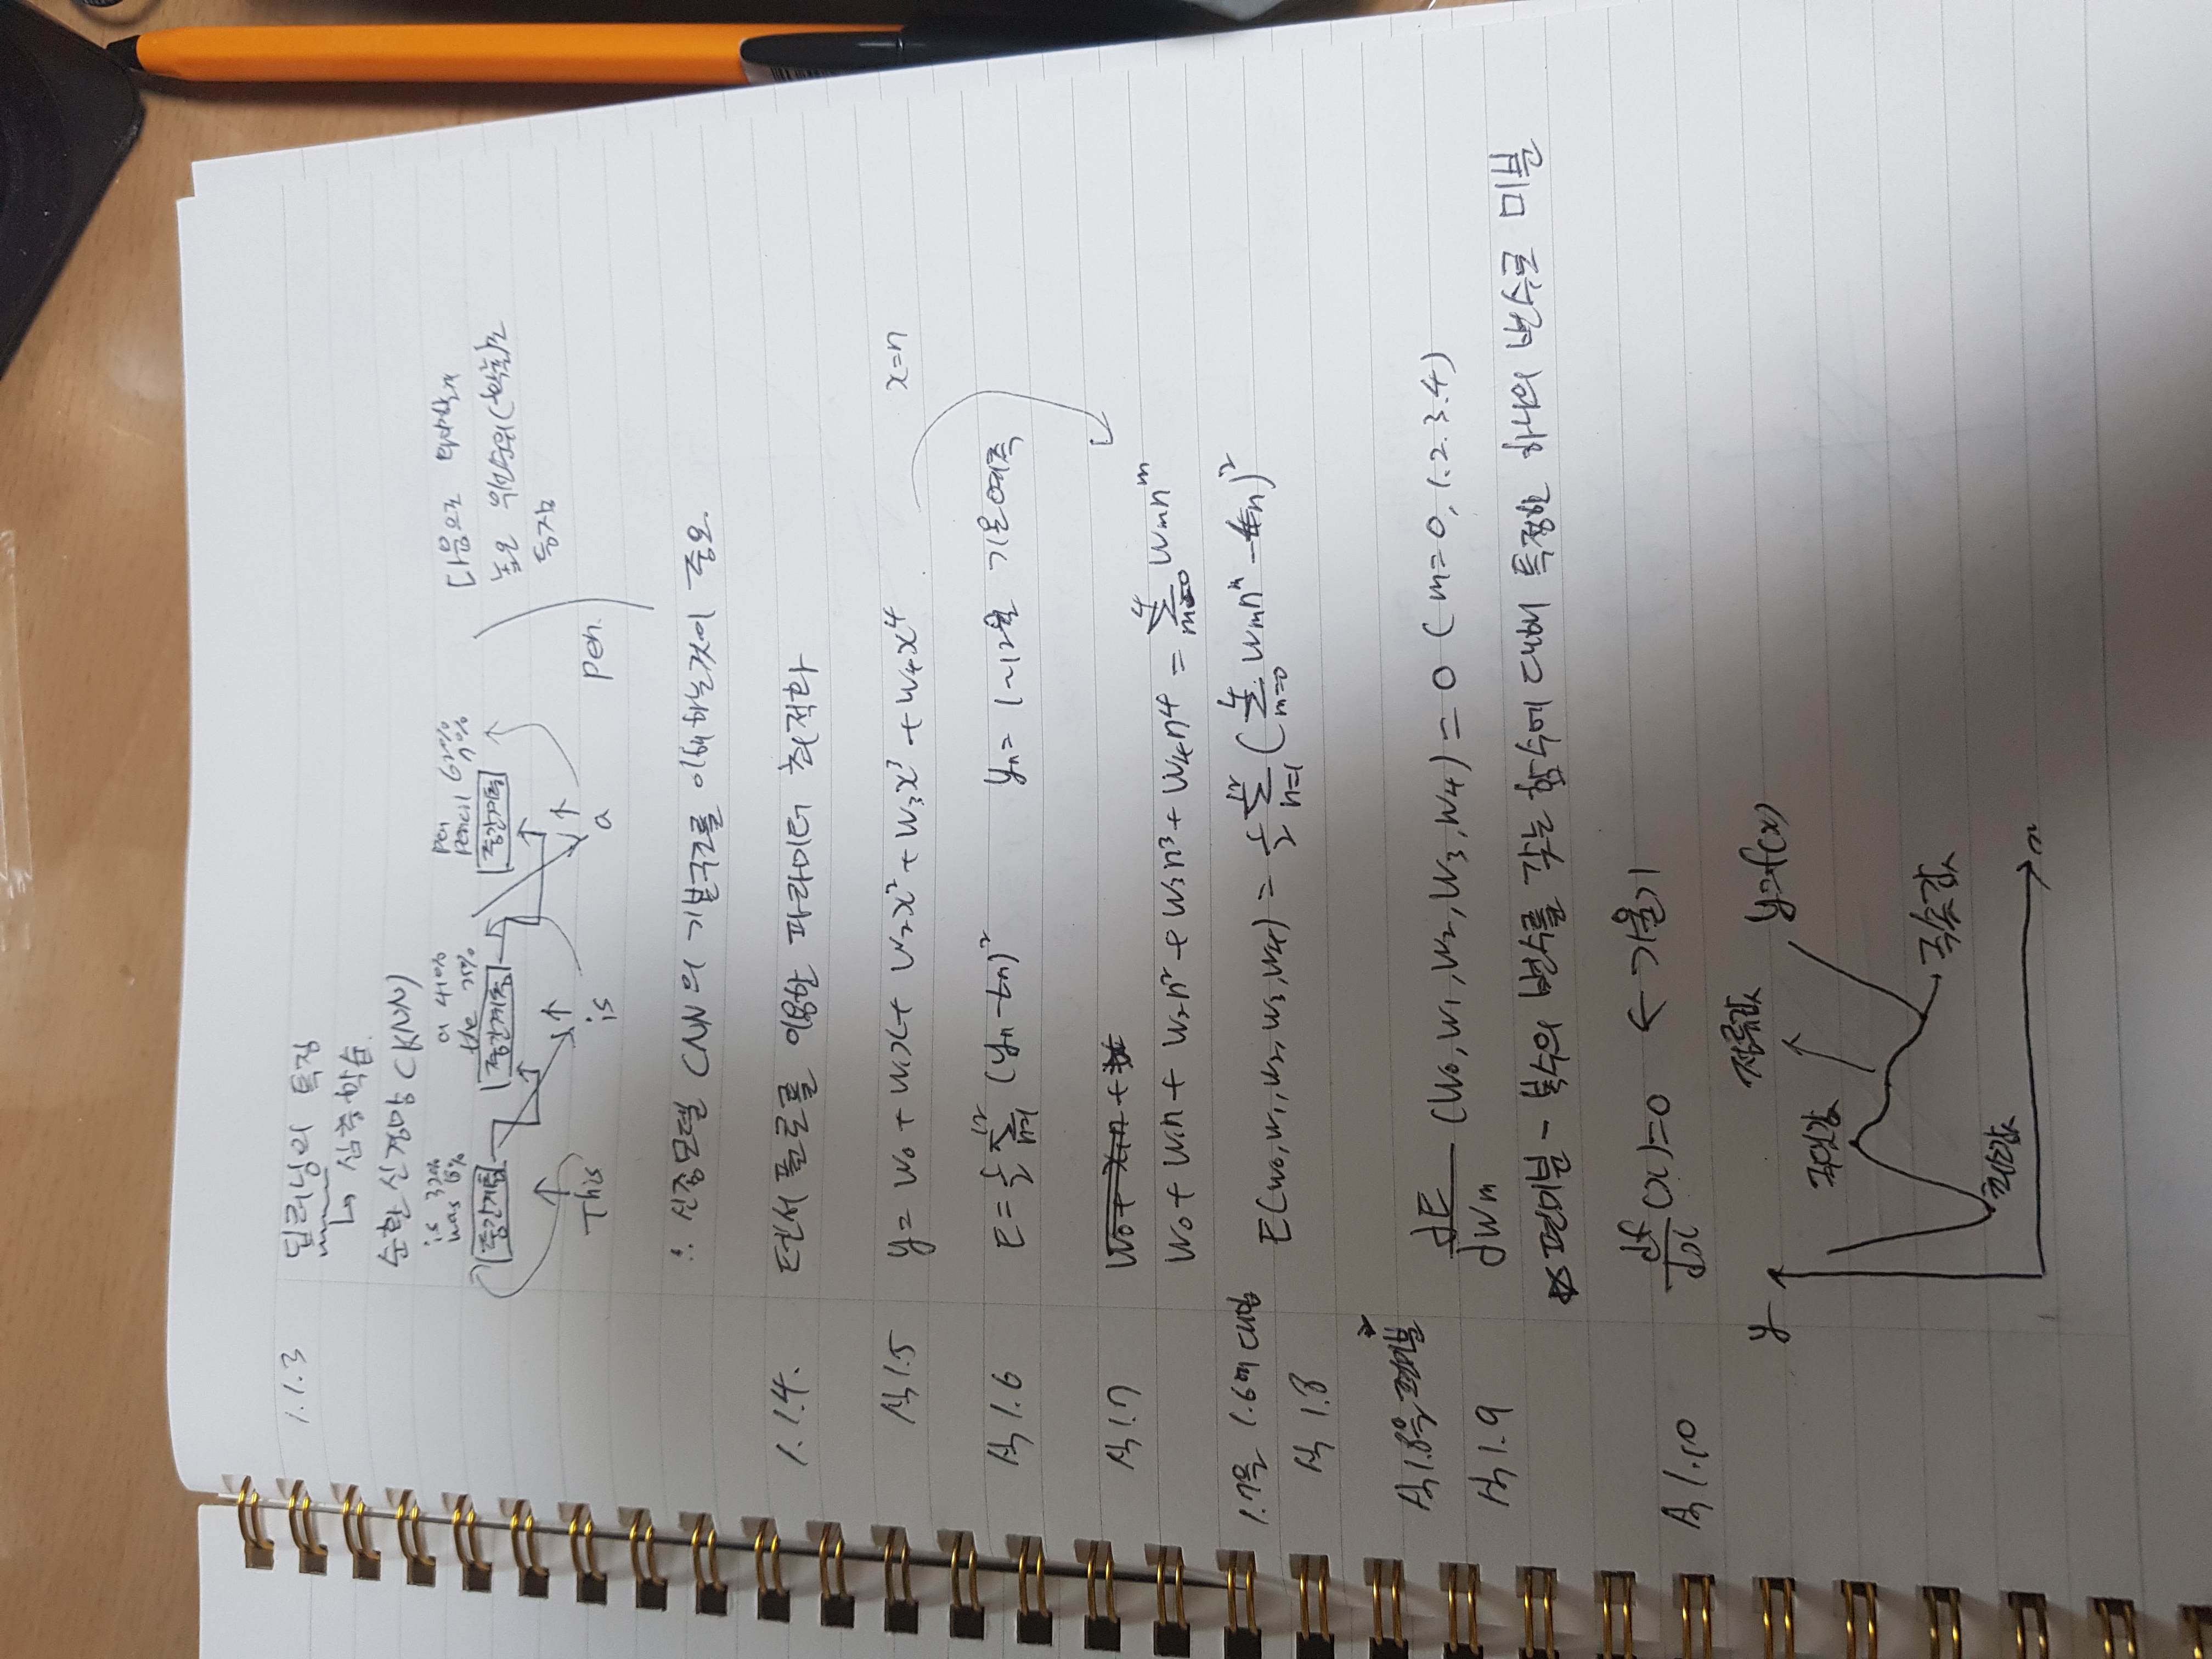 1.1.3 딥러닝의 특징
↳ 심층학습.
순환 신경망 (RNN)
is 32% a 41% pen 62%
was 18% the 25% pencil 7%
중간계층 중간계층 중간계층
다음으로
높은 (확률)로
등장
This is a pen.
∴ 신종모델 CNN의 기본구조를 이해하는것이 중요.
1.1.4. 텐서플로를 이용한 파라미터 최적화
식1.5 y = w₀ + w₁x + w₂x² + w₃x³ + w₄x⁴ x=n
식1.6 E = ½ ∑ₙ₌₁¹² (yₙ - tₙ)² yₙ = 1~12월 기온예측
식1.7
w₀ + w₁n + w₂n² + w₃n³ + w₄n⁴ = ∑ₘ₌₀⁴ wₘnᵐ
1.7을 1.6에 대입
식1.8 E(w₀,w₁,w₂,w₃,w₄) = ½ ∑ₙ₌₁¹² (∑ₘ₌₀⁴ wₘnᵐ - tₙ)²
식1.8을 편미분
식1.9 dE/dwₘ (w₀,w₁,w₂,w₃,w₄) = 0 (m=0,1.2.3.4)
☆ 편미분 - 복수의 변수를 갖는 함수에 대해 특정한 하나의 변수로 미분
식1.10 df/dx (x)=0 ← 기울기
정류값
y y=f(x)
극댓값
극솟값
최소값
x